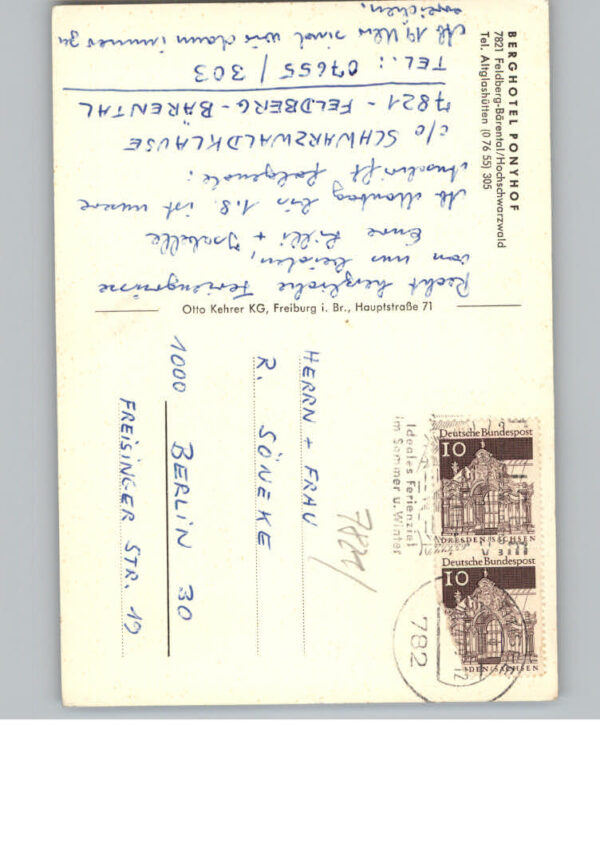 BERGHOTEL PONYHOF
7821 Feldberg-Bärental/Hochschwarzwald
Tel. Altglashütten (0 76 55) 305
Recht herzliche Feriengrüsse
von uns beiden,
Eure Lilli + Isabelle
Ab Montag bis 1.8. ist unsere
Anschrift folgende:
c/o SCHWARZWALDKLAUSE
7821 - FELDBERG - BÄRENTAL
TEL.: 07655 / 303
Ab 19 Uhr sind wir dann immer zu
erreichen.
Otto Kehrer KG, Freiburg i. Br., Hauptstraße 71
Deutsche Bundespost
10
DRESDEN/SACHSEN
Deutsche Bundespost
10
DRESDEN/SACHSEN
Ideales Ferienziel
im Sommer u. Winter
782
12
7821/
HERRN + FRAU
R. SÖNEKE
1000 BERLIN 30
FREISINGER STR. 19